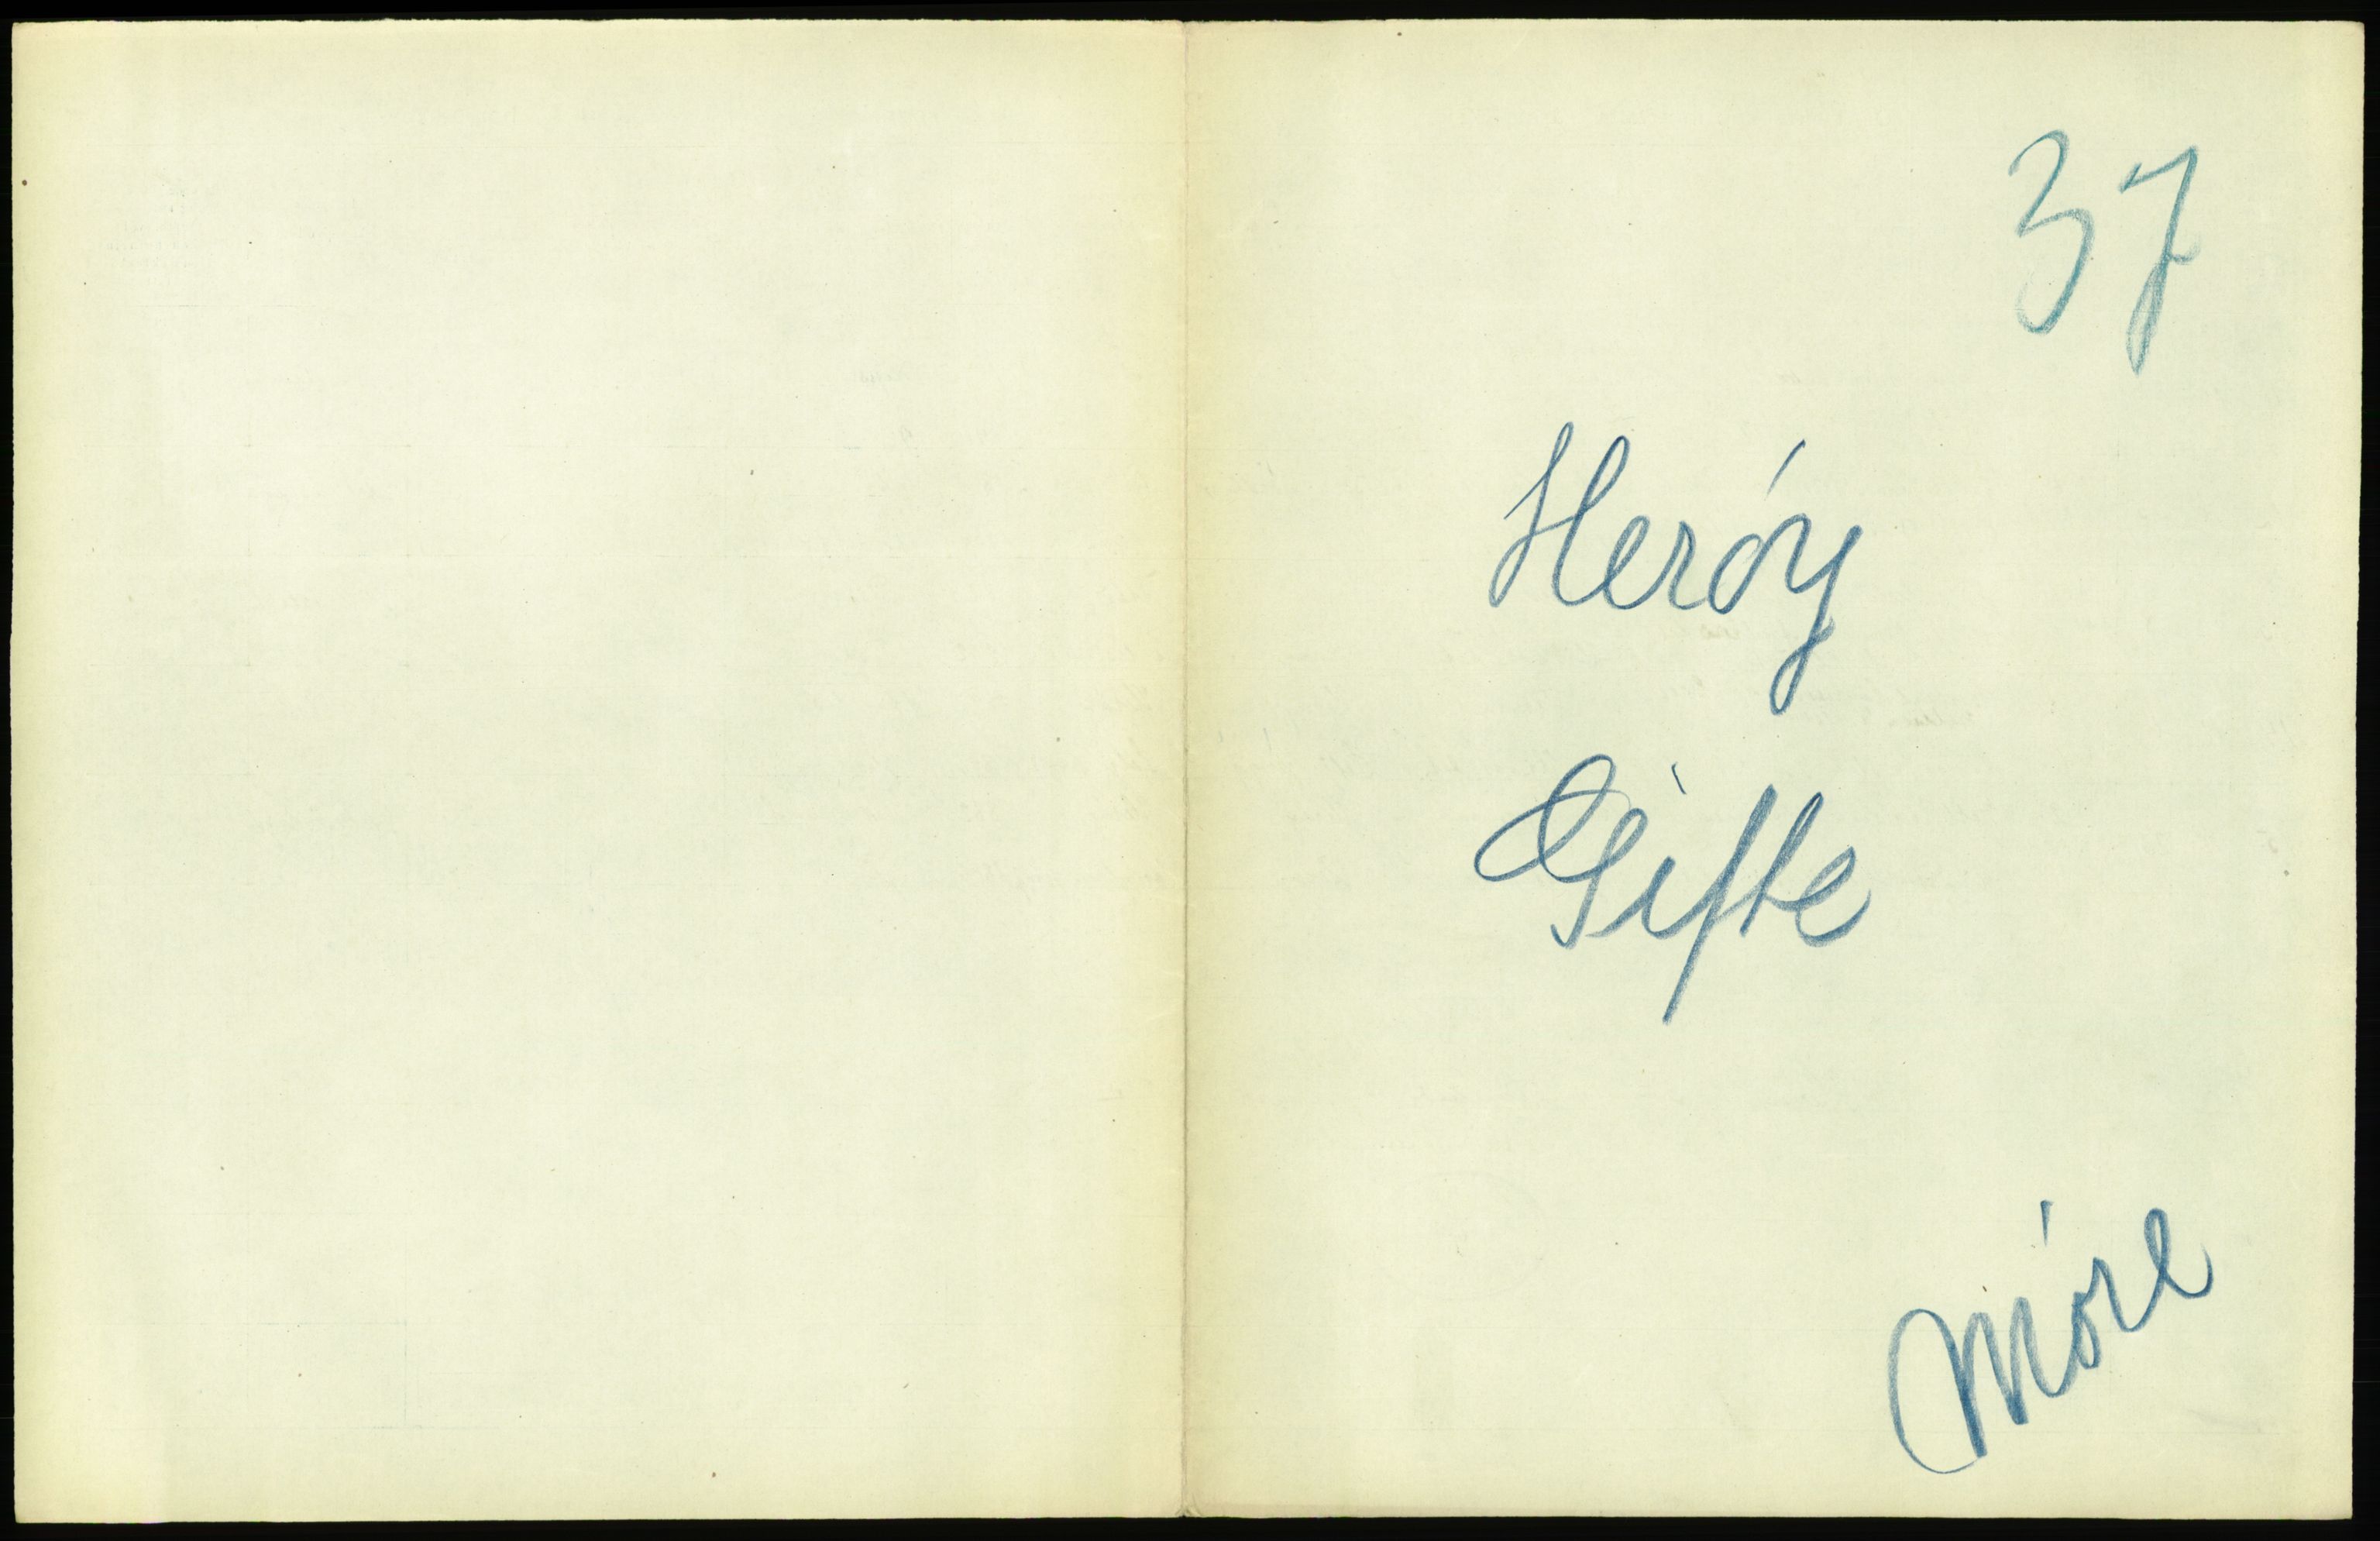 37
Heróy
Gifte
Móre